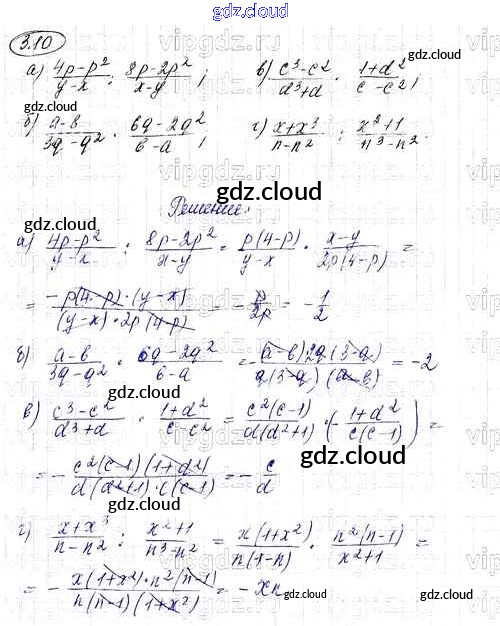 gdz.cloud
3.10
а) (4p-p²)/(y-x) : (8p-2p²)/(x-y); в) (c³-c²)/(d³+d) · (1+d²)/(c-c²);
б) (a-b)/(3q-q²) · (6q-2q²)/(b-a); г) (x+x³)/(n-n²) : (x²+1)/(n³-n²).
gdz.cloud
Решение:
а) (4p-p²)/(y-x) : (8p-2p²)/(x-y) = p(4-p)/(y-x) · (x-y)/(2p(4-p)) =
= (-p(4-p)·(y-x))/((y-x)·2p(4-p)) = -p/2p = -1/2
б) (a-b)/(3q-q²) · (6q-2q²)/(b-a) = -((a-b)2q(3-q))/(q(3-q)(a-b)) = -2
в) (c³-c²)/(d³+d) · (1+d²)/(c-c²) = c²(c-1)/(d(d²+1)) · (-(1+d²)/(c(c-1))) =
= -(c²(c-1)(1+d²))/(d(d²+1)·c(c-1)) = -c/d
gdz.cloud
г) (x+x³)/(n-n²) : (x²+1)/(n³-n²) = x(1+x²)/(n(1-n)) · n²(n-1)/(x²+1) =
= -(x(1+x²)·n²(n-1))/(n(n-1)(1+x²)) = -xn
gdz.cloud